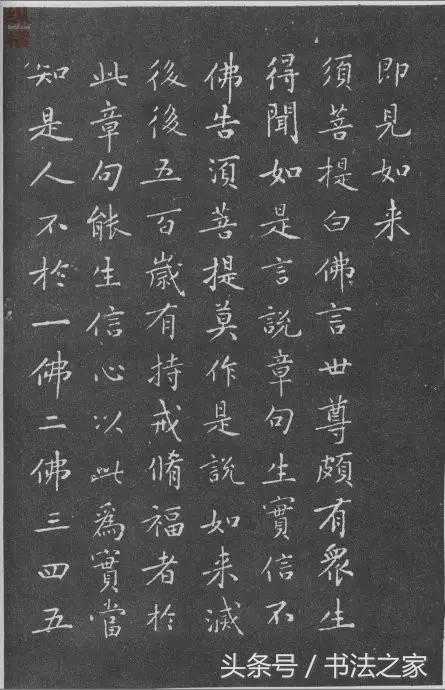 即見如来
須菩提白佛言世尊頗有衆生
得聞如是言說章句生實信不
佛告湏菩提莫作是說如来滅
後後五百歲有持戒脩福者於
此章句能生信心以此爲實當
知是人不於一佛二佛三四五
头条号 / 书法之家